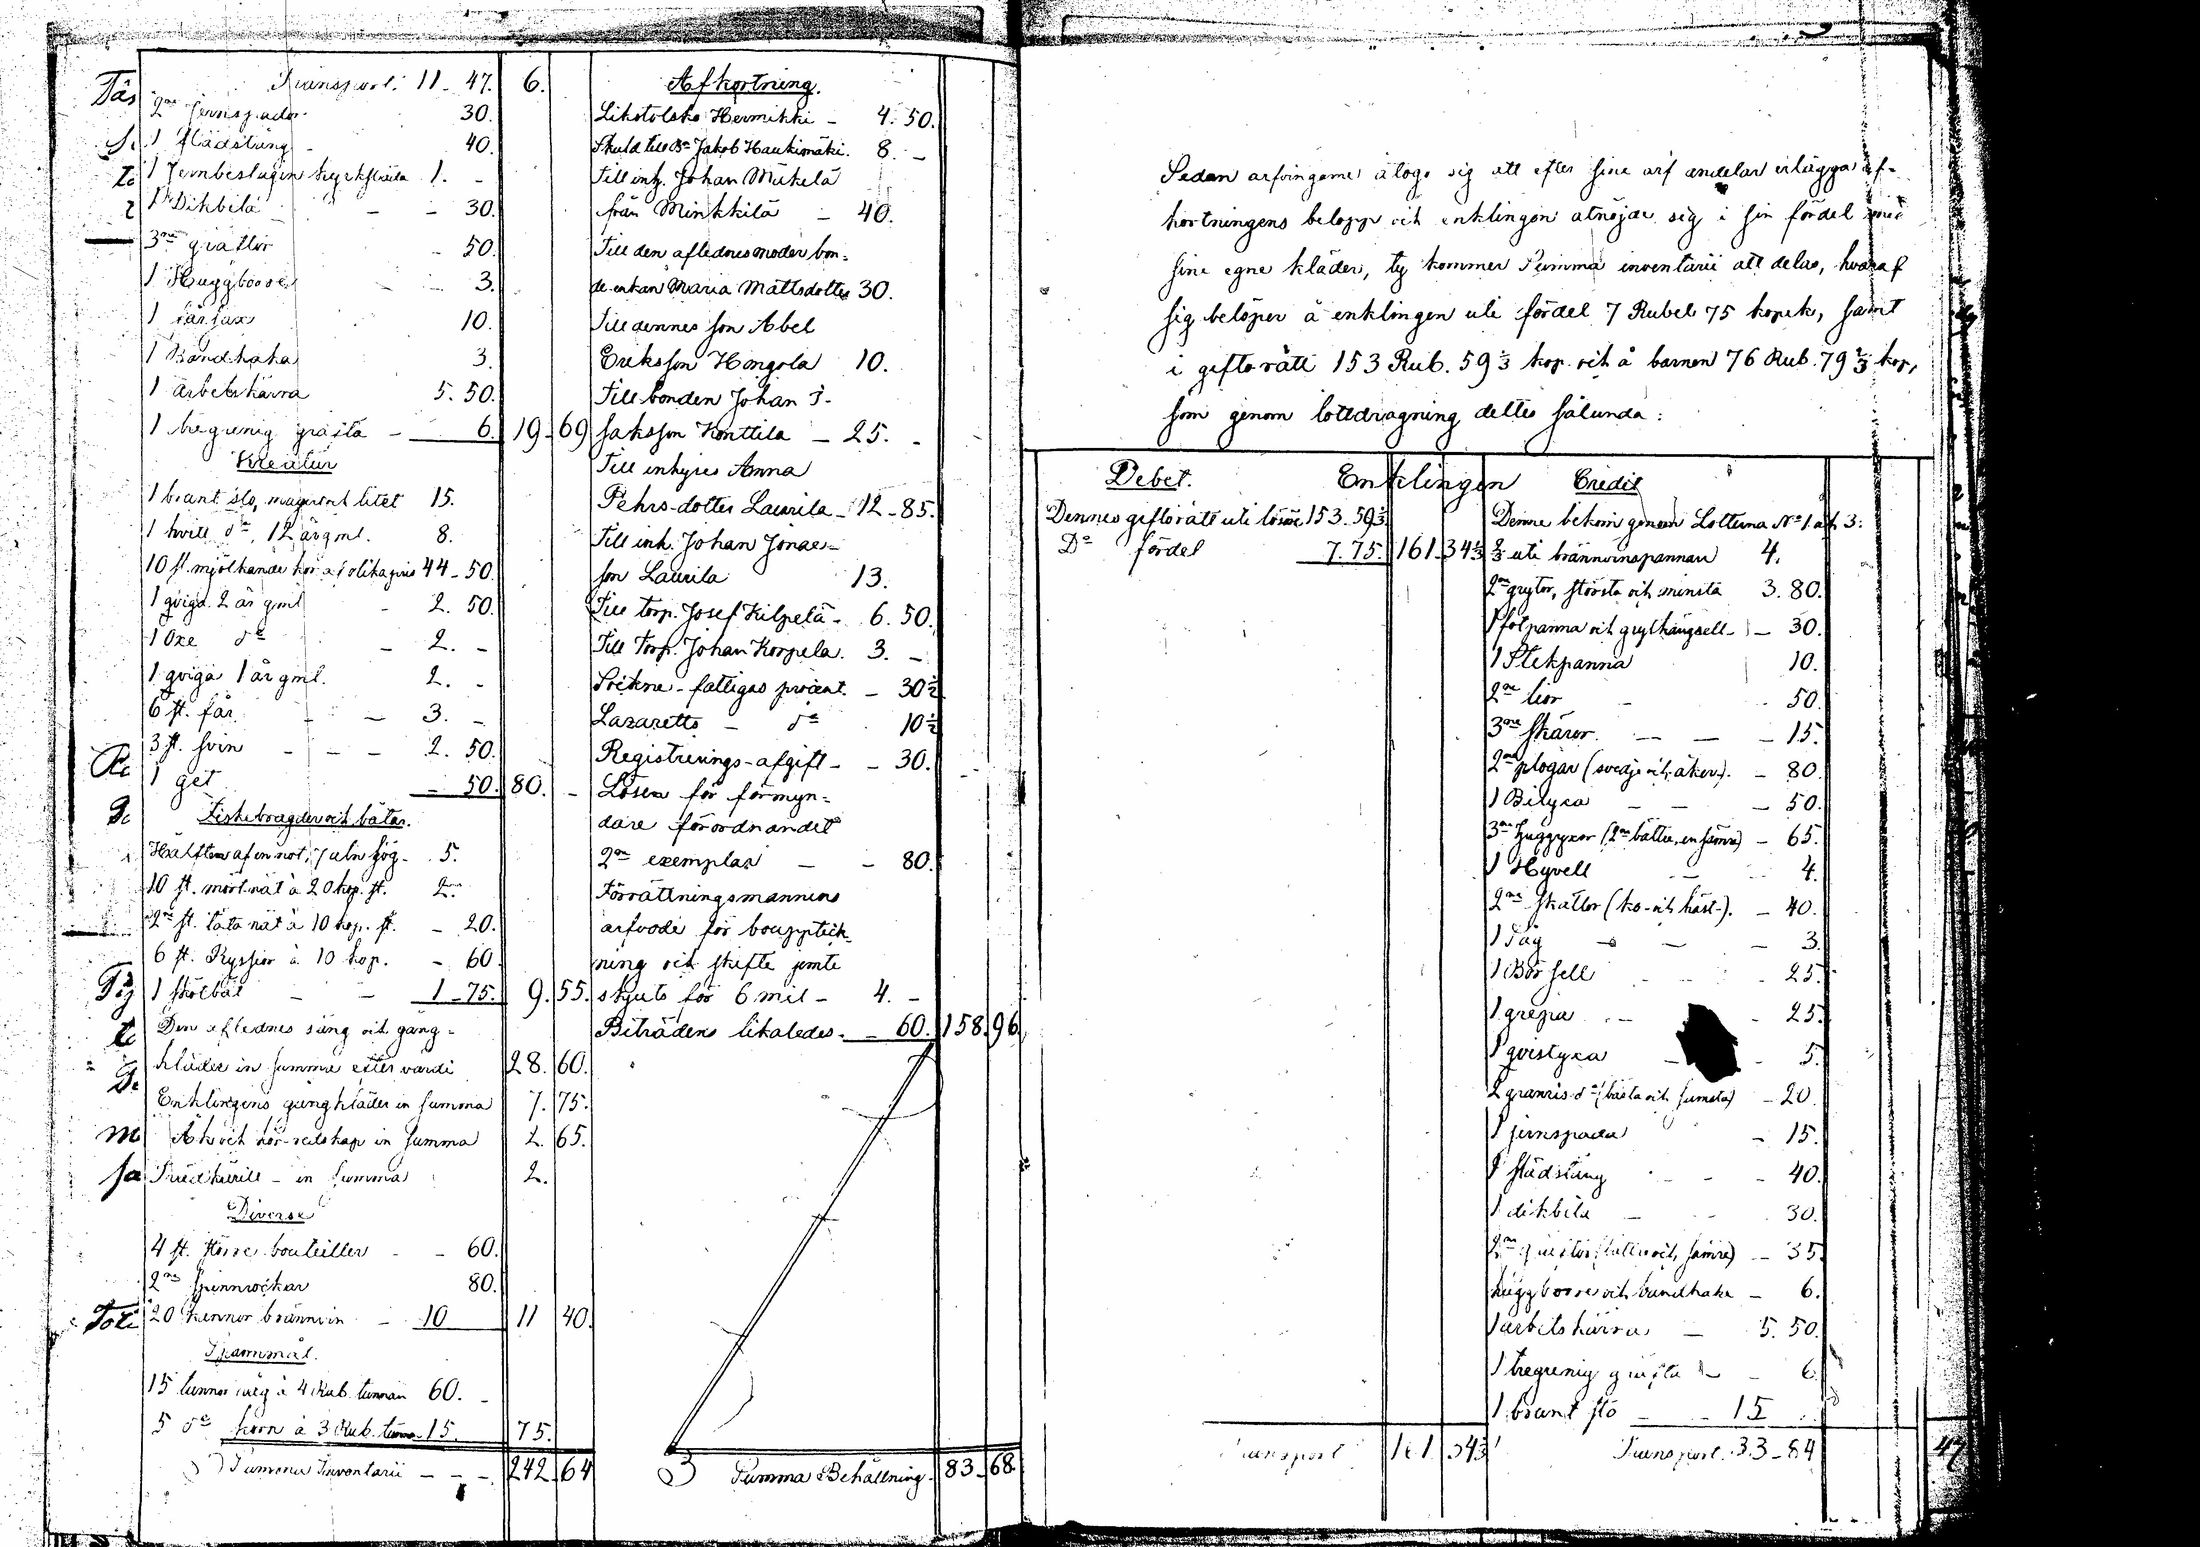 Transport. 11 - 47. 6.
2ne jernspador 30.
1 flädstång - 40.
1 Jernbeslagen kyrksläda 1. -
1 Dikbila - - 30.
3ne gräftor - 50.
1 Huggboose 3.
1 fårsax 10.
1 Bandhaka 3.
1 arbetskärra 5. 50.
1 tregrenig gräfta - 6. 19. 69
Kreatur
1 brant sto, magert litet 15.
1 hvitt do, 12 år gml. 8.
10 st. mjölkande kor af olika pris 44 - 50.
1 qviga 2 år gml - 2. 50.
1 Oxe do - 2. -
1 qviga 1 år gml. 2. -
6 st. får - 3. -
3 st. svin - - - 2. 50.
1 get - 50. 80. -
Fiskebragder och båtar.
Hälften af en not, 7 aln hög - 5.
10 st. mörtnät à 20 kop. st. 2.
2ne st. täta nät à 10 kop. st. - 20.
6 st. Ryssior à 10 kop. - 60
1 skötbåt - - 1 - 75. 9. 55.
Den aflednes säng och gång-
kläder in summa efter värdi 28. 60.
Enklingens gångkläder in summa 7. 75.
Åk och kör-redskap in summa 2. 65.
Trädkärill - in summa 2.
Diverse
4 st. större bouteiller - - 60.
2ne spinnrockar 80.
20 kannor brännvin - 10 11 40.
Spannmål.
15 tunnor råg à 4 Rub. tunnan 60. -
5 do korn à 3 Rub. tunna 15. 75.
Summa Inventarii - - - 242. 64
Afkortning.
Likstolsko Hermikki - 4. 50.
Skuld till Bn Jakob Haukimäki. 8. -
Till inh. Johan Mikelä
från Minkkilä - 40.
Till den aflednes moder bon-
de enkan Maria Mattsdotter 30.
Till dennes son Abel
Eriksson Hongola 10.
Till bonden Johan I-
saksson Konttila - 25. -
Till inhyses Anna
Pehrs-dotter Laurila - 12 - 85.
Till inh. Johan Jonae-
son Laurila 13.
Till torp. Josef Kilpelä - 6. 50.
Till Torp. Johan Korpela. 3. -
Sockne-fattigas procent. - 30½
Lazaretts - do 10½
Registrerings-afgift - - 30.
Lösen för förmyn-
dare förordnandet
2ne exemplar - - 80.
Förrättningsmannens
arfvode för bouppteck-
ning och skifte jemte
skjuts för 6 mil - 4. -
Biträdens likaledes - - 60. 158. 96.
Summa Behållning. 83. 68.
Sedan arfvingarne åtogo sig att efter sine arf andelar erlägga af-
kortningens belopp och enklingen åtnöjde sig i sin fördel med
sine egne kläder, ty kommer Summa inventarii att delas, hvaraf
sig belöper å enklingen uti fördel 7 Rubel 75 kopek, samt
i giftorätt 153 Rub. 59⅓ kop. och å barnen 76 Rub. 79⅔ kop,
som genom lottdragning deltes sålunda:
Debet. Enklingen Credit
Dennes giftorätt uti lösöre 153. 59⅓
Do fördel 7. 75. 161. 34⅓
Denne bekom genom Lotterna No 1. af 3:
⅔ uti brännvinspannan 4.
2ne grytor, största och minsta 3. 80.
1 fotpanna och grythängsell - - 30.
1 Stekpanna 10.
2ne liör - 50.
3ne skäror. - - - 15.
2ne plogar (svedje och åker). - 80
1 Bilyxa - - - 50.
3ne huggyxor (2ne bättre, en sämre) - 65.
1 Hyvell - 4.
2ne skällor (ko- och häst-). - 40.
1 Såg - - - 3.
1 Bör sell - - 25.
1 grepa - - 25.
1 qvistyxa - - 5.
2 granris do (bästa och sämsta) - 20.
1 jernspada - 15.
1 flädstång - - 40.
1 dikbila - - 30.
2ne gräftor (bättre och sämre) - 35
huggboose och bandhaka - 6.
1 arbetskärra - 5. 50.
1 tregrenig gräfta - - 6.
1 brant sto - - 15
Transport 161 34⅓ Transport. 33 - 84
47